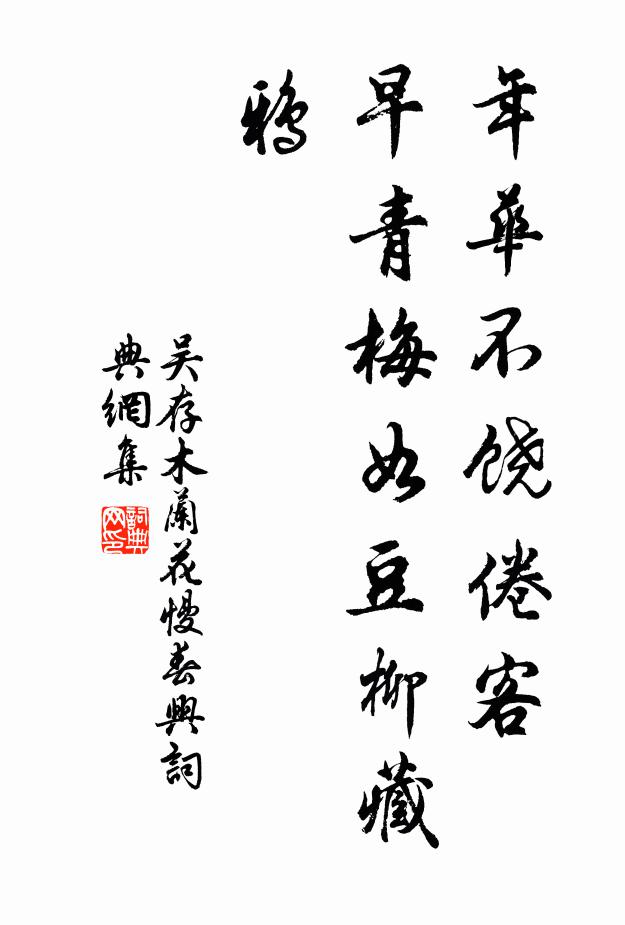 年華不饒倦客
早青梅如豆柳藏
鴉
吴存木蘭花慢春興詞
典網集
詞典
网印